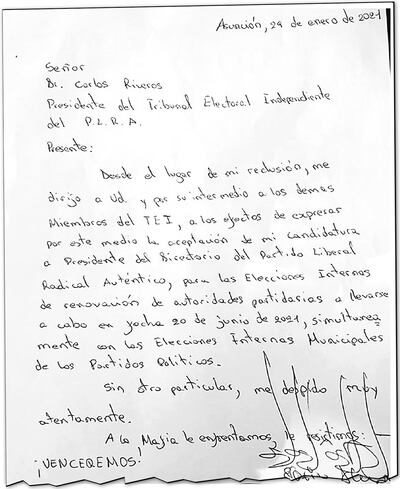 Asunción, 29 de enero de 2021
Señor
Dr. Carlos Riveros
Presidente del Tribunal Electoral Independiente
del P.L.R.A.
Presente:
Desde el lugar de mi reclusión, me
dirijo a Ud. y por su intermedio a los demas
Miembros del TEI, a los efectos de expresar
por este medio la aceptación de mi candidatura
a Presidente del Directorio del Partido Liberal
Radical Auténtico, para las Elecciones Internas
de renovación de autoridades partidarias a llevarse
a cabo en fecha 20 de junio de 2021, simultanea
mente con las Elecciones Internas Municipales
de los Partidos Políticos.
Sin otro particular, me despido muy
atentamente.
A la Mafia le enfrentamos, le resistimos:
¡VENCEREMOS!